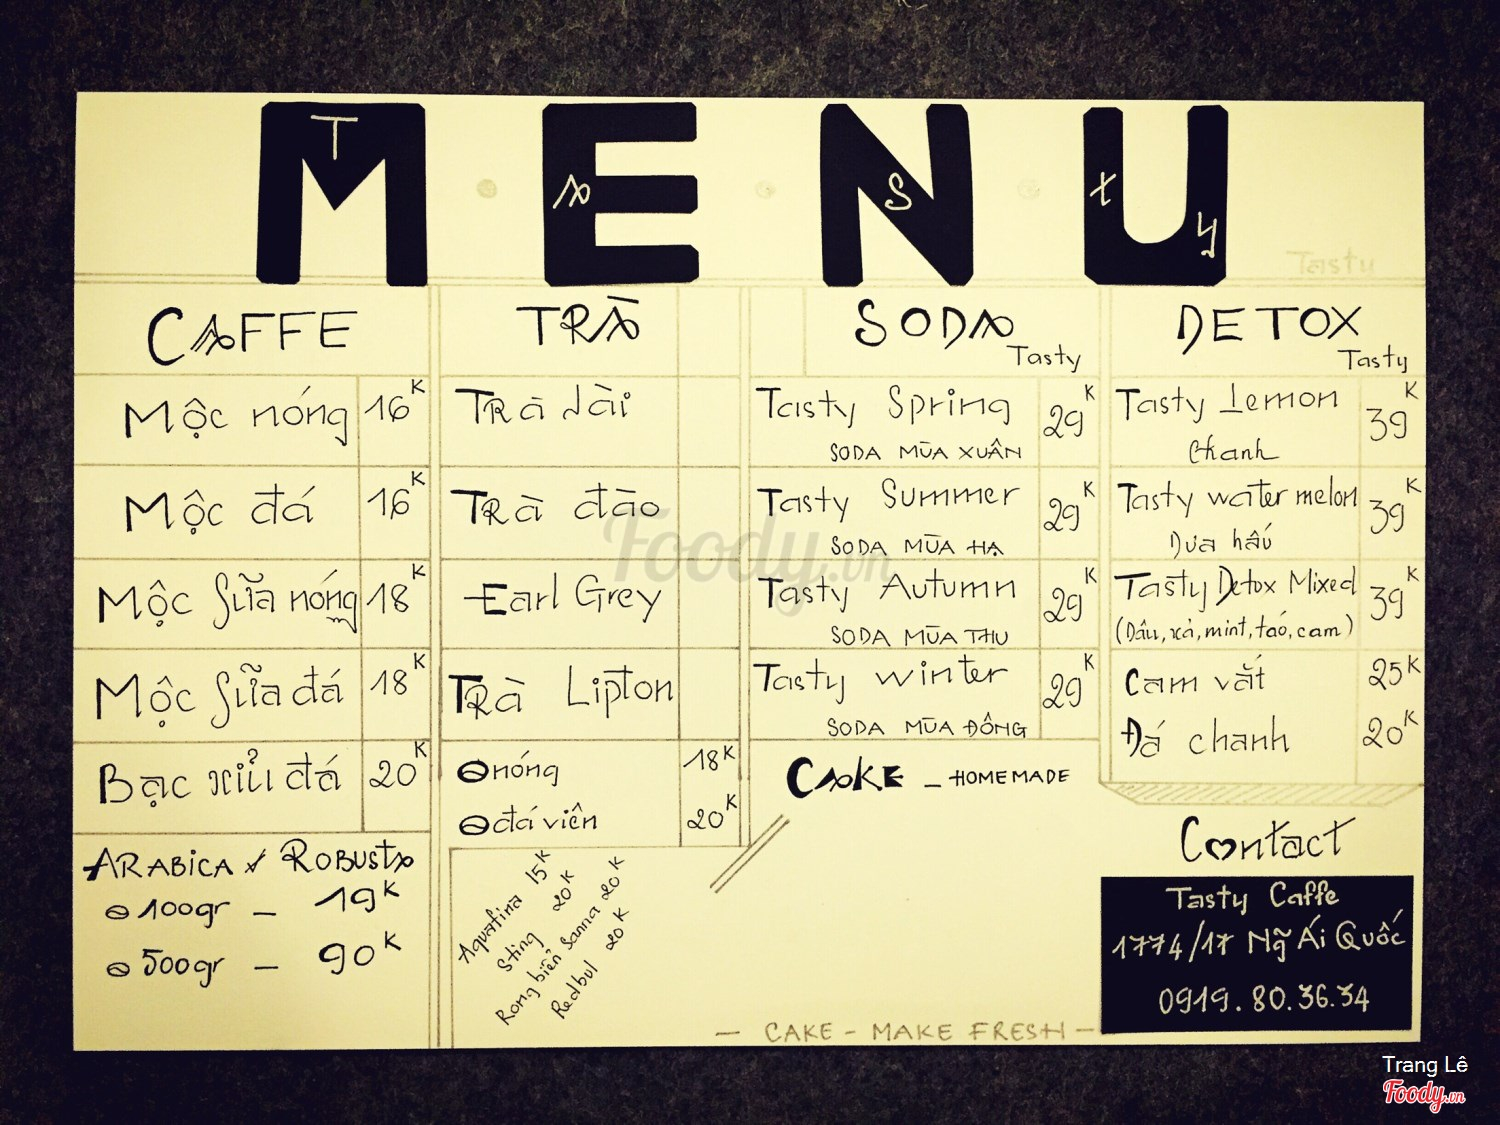 MENU
T a s t y
Tasty
CAFFE
Mộc nóng 16K
Mộc đá 16K
Mộc sữa nóng 18K
Mộc sữa đá 18K
Bạc xỉu đá 20K
ARABICA & ROBUSTA
100gr - 19K
500gr - 90K
TRÀ
Trà lài
Trà đào
Earl Grey
Trà Lipton
nóng 18K
đá viên 20K
Aquafina 15K
Sting 20K
Rong biển Sanna 20K
Redbul 20K
SODA
Tasty
Tasty Spring 29K
SODA MÙA XUÂN
Tasty Summer 29K
SODA MÙA HẠ
Tasty Autumn 29K
SODA MÙA THU
Tasty winter 29K
SODA MÙA ĐÔNG
CAKE - HOMEMADE
- CAKE - MAKE FRESH -
DETOX
Tasty
Tasty Lemon 39K
Chanh
Tasty watermelon 39K
Dưa hấu
Tasty Detox Mixed 39K
(Dâu, xả, mint, táo, cam)
Cam vắt 25K
Đá chanh 20K
Contact
Tasty Caffe
1774/17 Ng̃ Ái Quốc
0919.80.36.34
Foody.vn
Trang Lê
Foody.vn